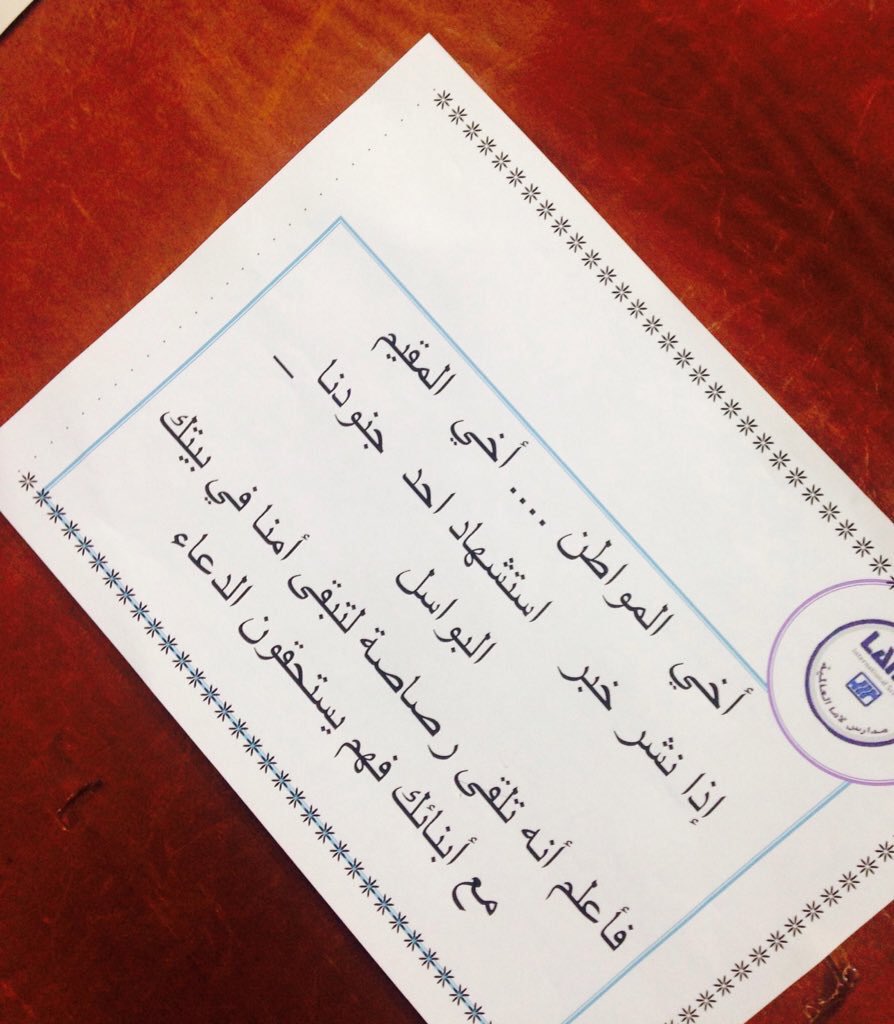 أخي المواطن .... أخي المقيم
إذا نشر خبر استشهاد احد جنودنا _
البواسل
فأعلم أنه تلقى رصاصة لتبقى أمنا في بيتك
مع أبنائك فهم يستحقون الدعاء
مدارس لانا العالمية